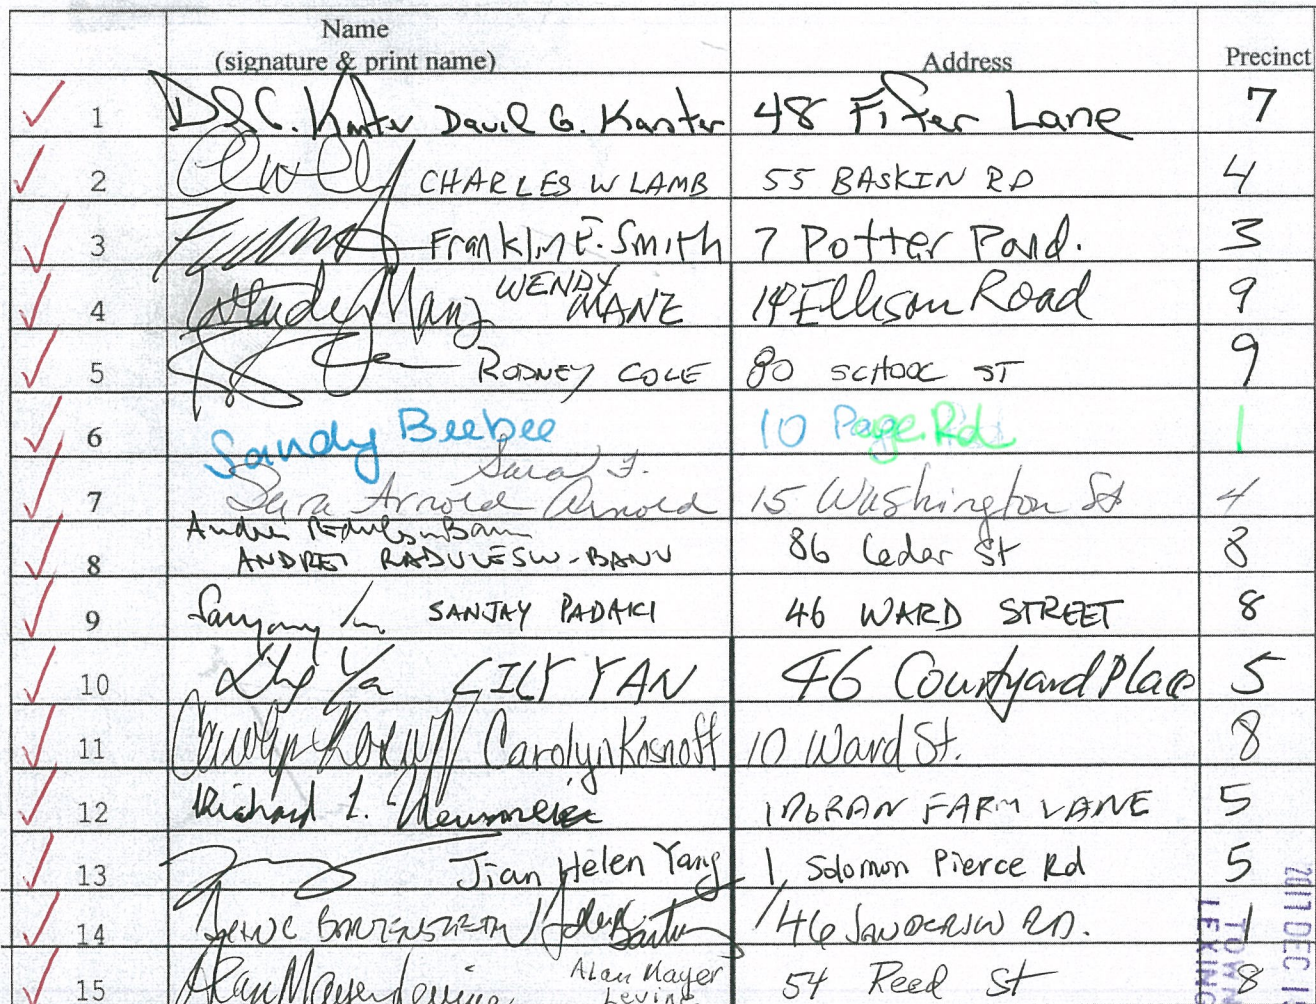 Name
(signature & print name) Address Precinct
1 David G. Kanter 48 Fifer Lane 7
2 CHARLES W LAMB 55 BASKIN RD 4
3 Franklin E. Smith 7 Potter Pond. 3
4 Wendy Manz WENDY MANZ 14 Ellison Road 9
5 RODNEY COLE 80 SCHOOL ST 9
6 Sandy Beebee 10 Page Rd 1
Sara F.
7 Sara Arnold Arnold 15 Washington St 4
8 ANDREI RADULESCU-BANU 86 Cedar St 8
9 SANJAY PADAKI 46 WARD STREET 8
10 LILY YAN 46 Courtyard Place 5
11 Carolyn Kosnoff Carolyn Kosnoff 10 Ward St. 8
12 Richard L. Neumeier 1 DORAN FARM LANE 5
13 Jian Helen Yang 1 Solomon Pierce Rd 5
14 46 SANDERSON RD. 1
15 Alan Mayer Levine Alan Mayer 54 Reed St 8
Levine
2017 DEC
TOWN
LEXING